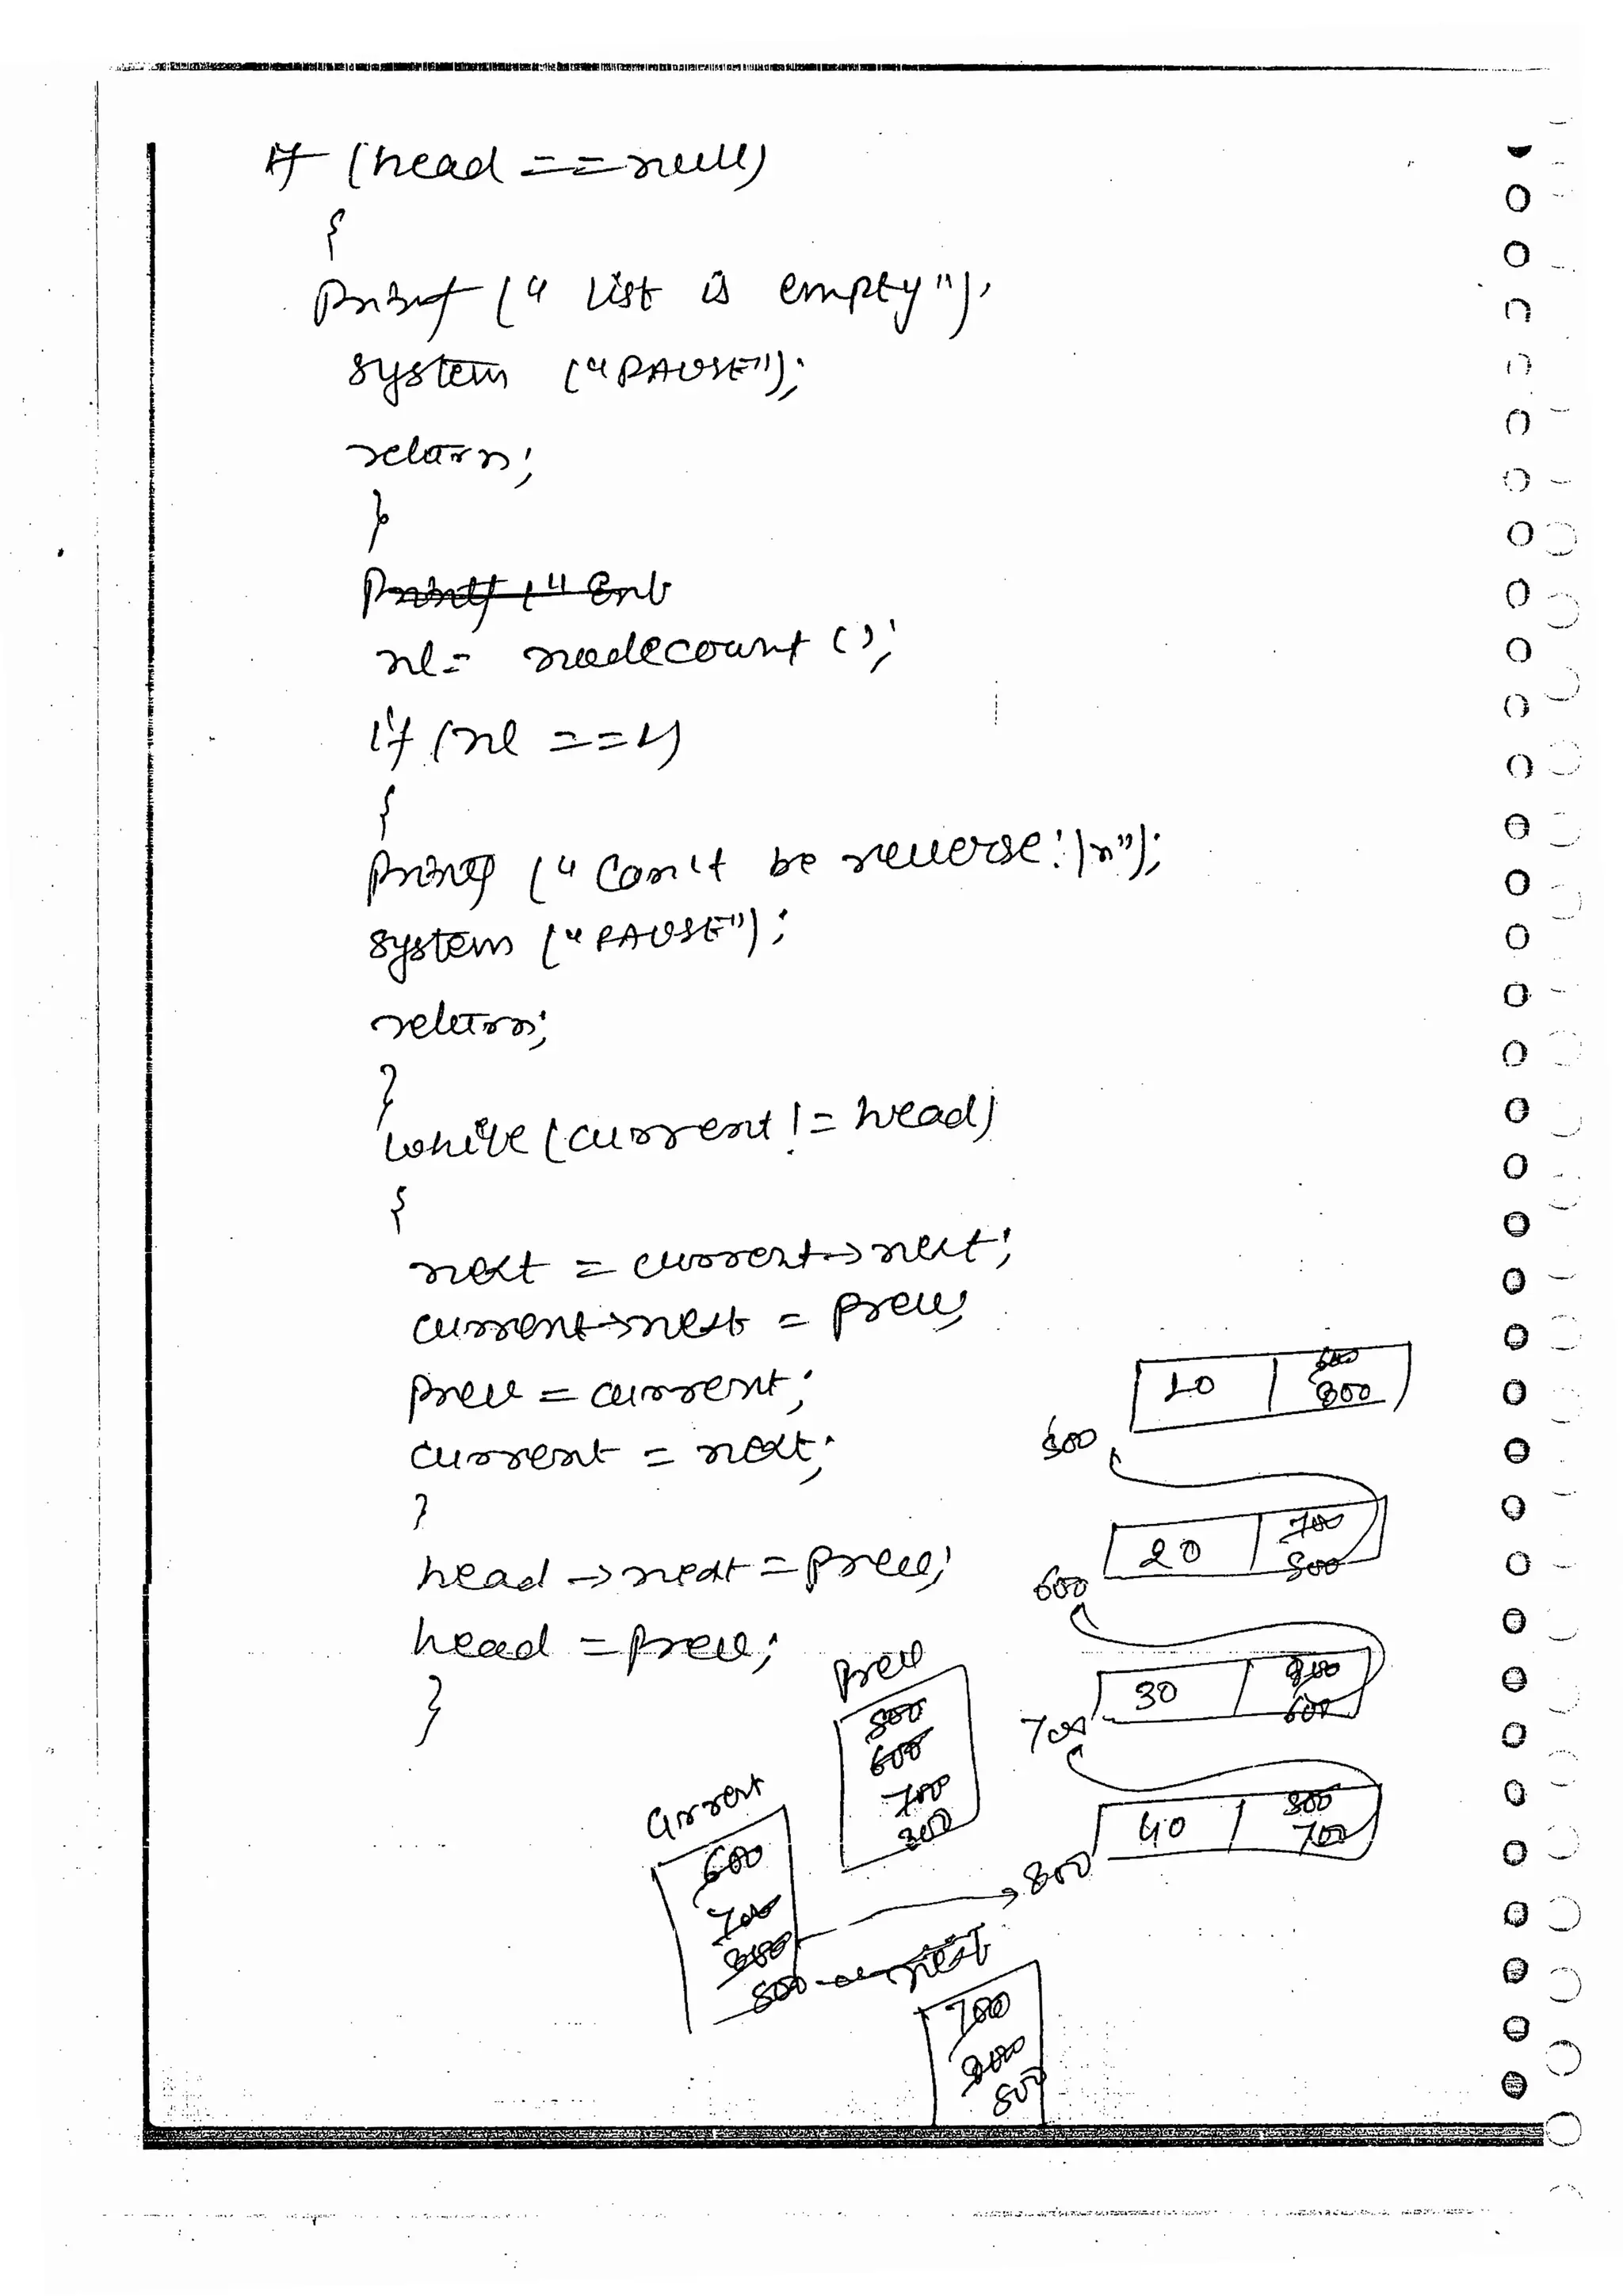 if (head == null)
{
printf (" List is empty");
system ("PAUSE");
return;
}
printf (" Ent
nl = nodecount ();
if (nl == 1)
{
printf (" Can't be reverse!\n");
system ("PAUSE");
return;
}
while (current != head)
{
next = current->next;
current->next = prev;
prev = current;
current = next;
}
head -> next = prev;
head = prev;
}
10 600 800
500
20 700 500
600
30 800 600
700
40 500 700
800
prev
500
600
700
800
current
600
700
800
500
next
700
800
500